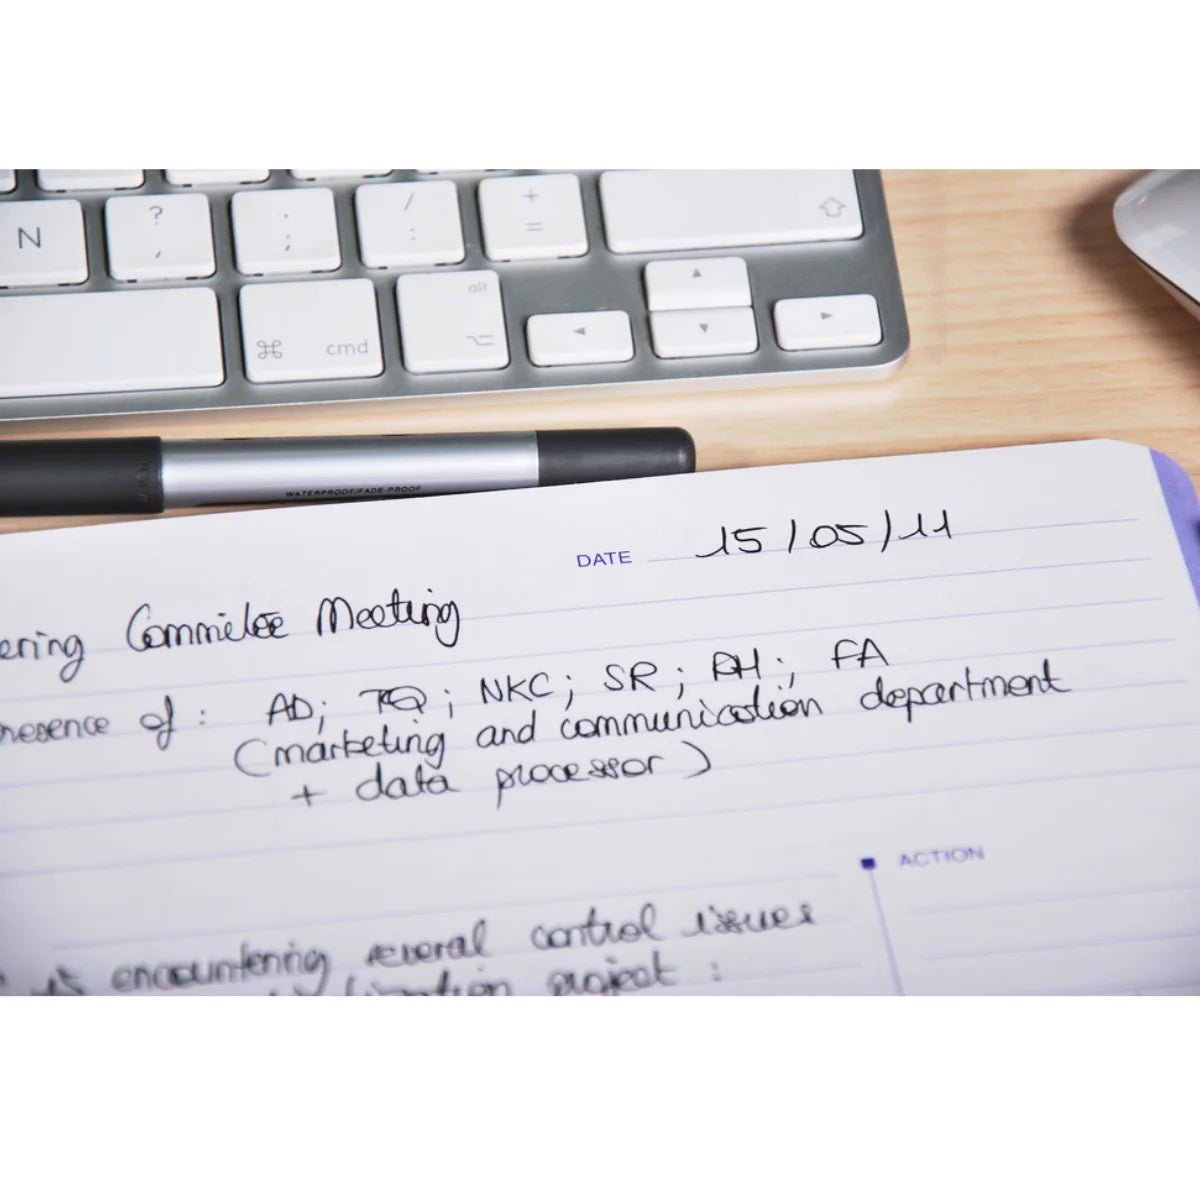 N
? ,
. ;
/ :
+ =
alt
cmd
WATERPROOF/FADE-PROOF
DATE 15/05/11
ering Commitee Meeting
resence of : AD; TQ; NKC; SR; RH; FA
(marketing and communication department
+ data processor)
ACTION
encountering several control issues
project :